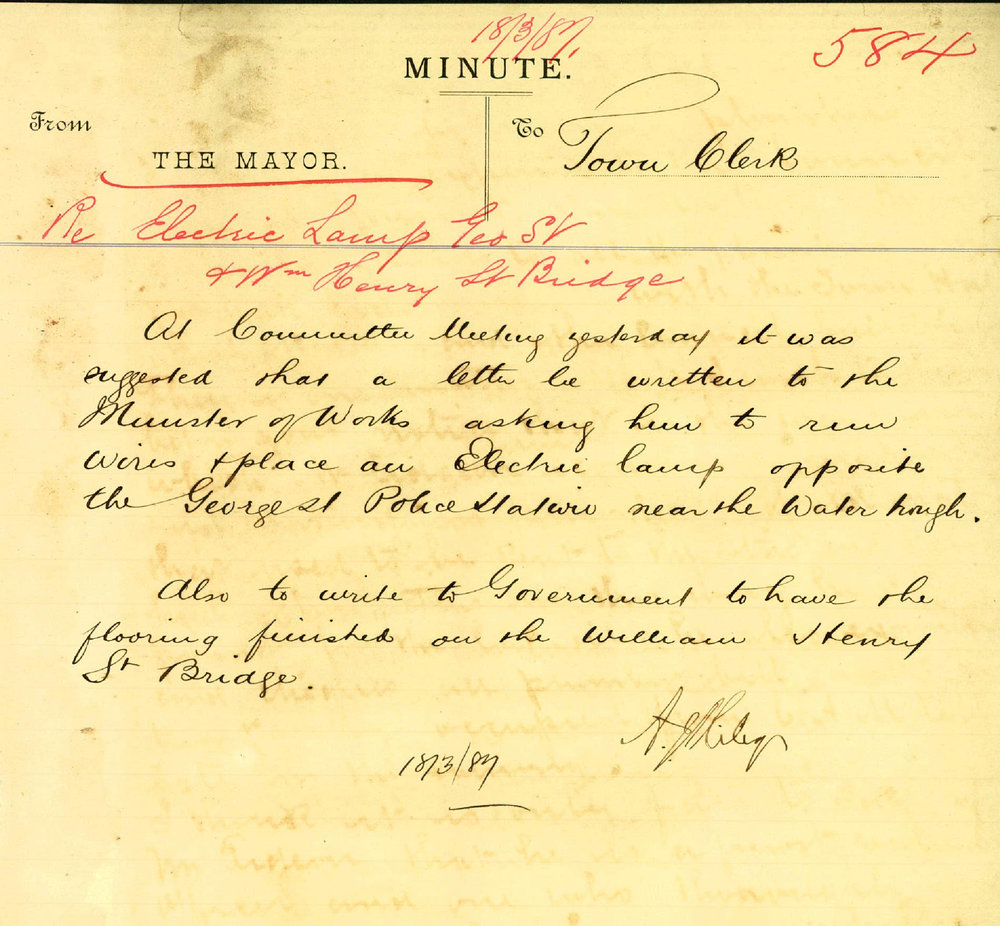 18/3/87.
584
MINUTE.
From
To
THE MAYOR.
Town Clerk
Re Electric Lamp Geo St
& Wm Henry St Bridge
At Committee Meeting yesterday it was
suggested that a letter be written to the
Minister of Works asking him to run
wires & place an Electric lamp opposite
the George St Police Station near the Water trough.
Also to write to Government to have the
flooring finished on the William Henry
St Bridge.
A. J. Riley
18/3/87